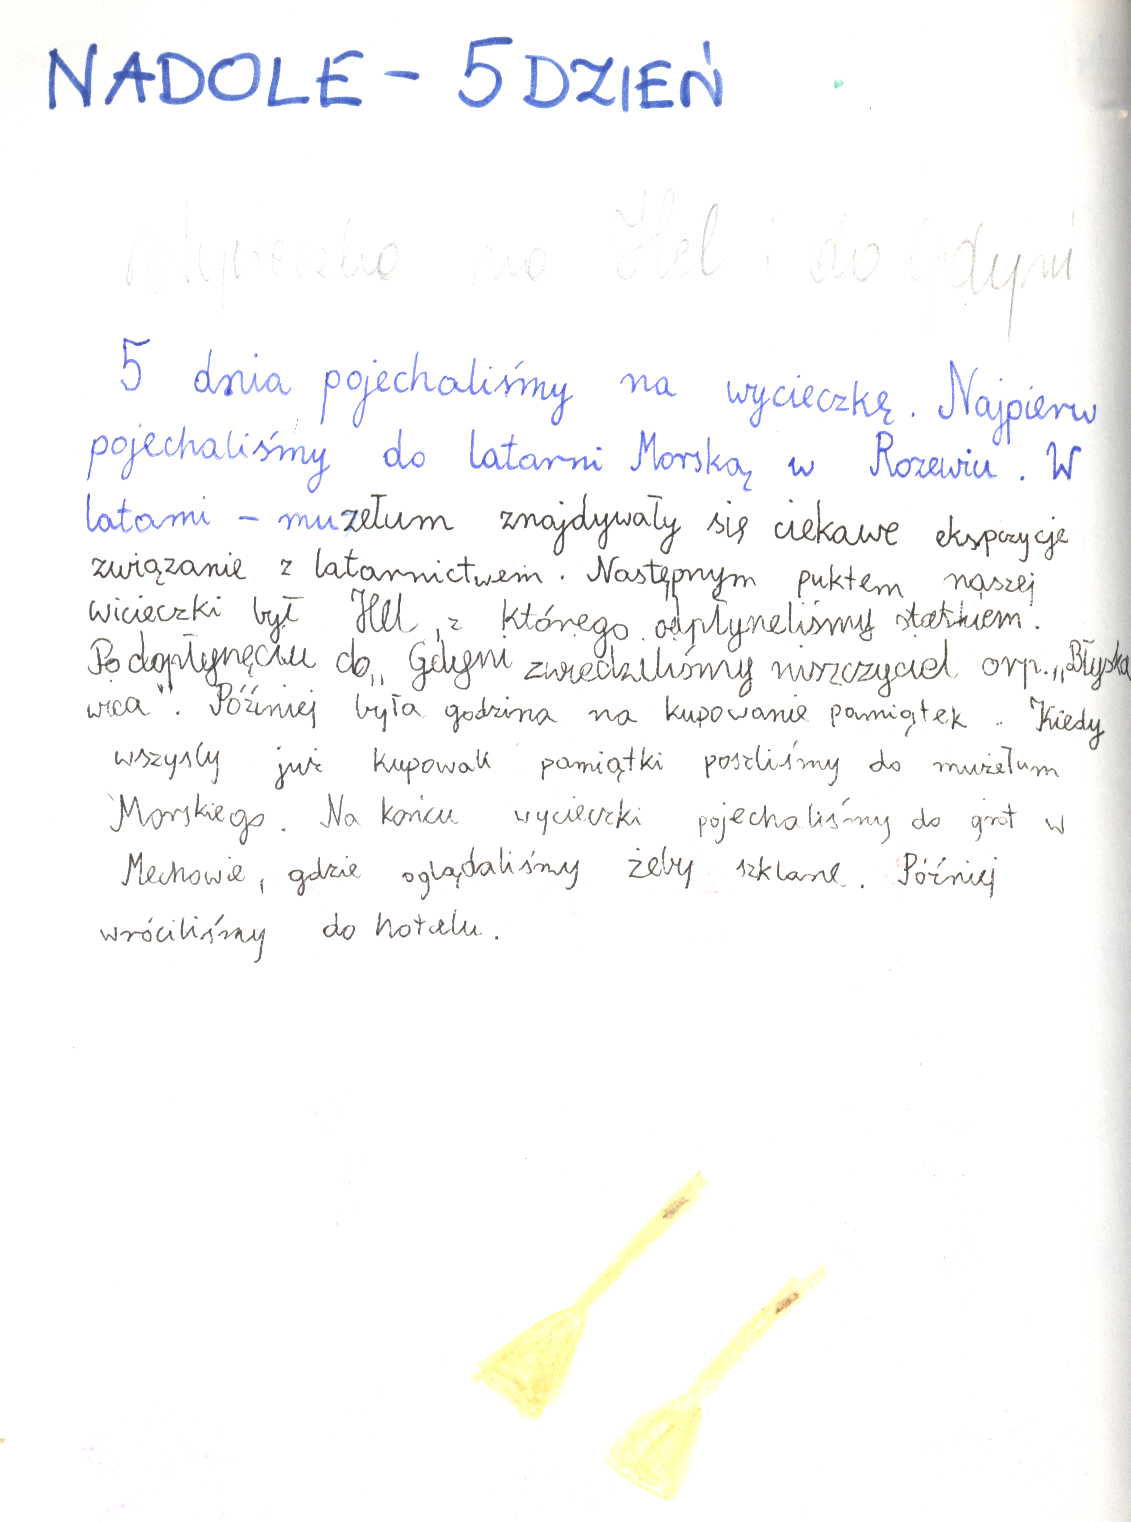 NADOLE - 5 DZIEŃ
Wycieczka na Hel i do Gdyni
5 dnia pojechaliśmy na wycieczkę. Najpierw
pojechaliśmy do latarni Morską w Rozewiu. W
latarni - muzełum znajdywały się ciekawe ekspozycje
związanie z latarnictwem. Następnym puktem naszej
wicieczki był Hel, z którego odpłyneliśmy statkiem.
Po dopłynęciu do Gdyni zwiedziliśmy niszczyciel orp. „Błyska
wica". Później była godzina na kupowanie pamiątek. Kiedy
wszysly już kupowali pamiątki poszliśmy do muzełum
Morskiego. Na końcu wycieczki pojechaliśmy do grot w
Mechowie, gdzie oglądaliśmy żeby szklane. Później
wróciliśmy do hotelu.